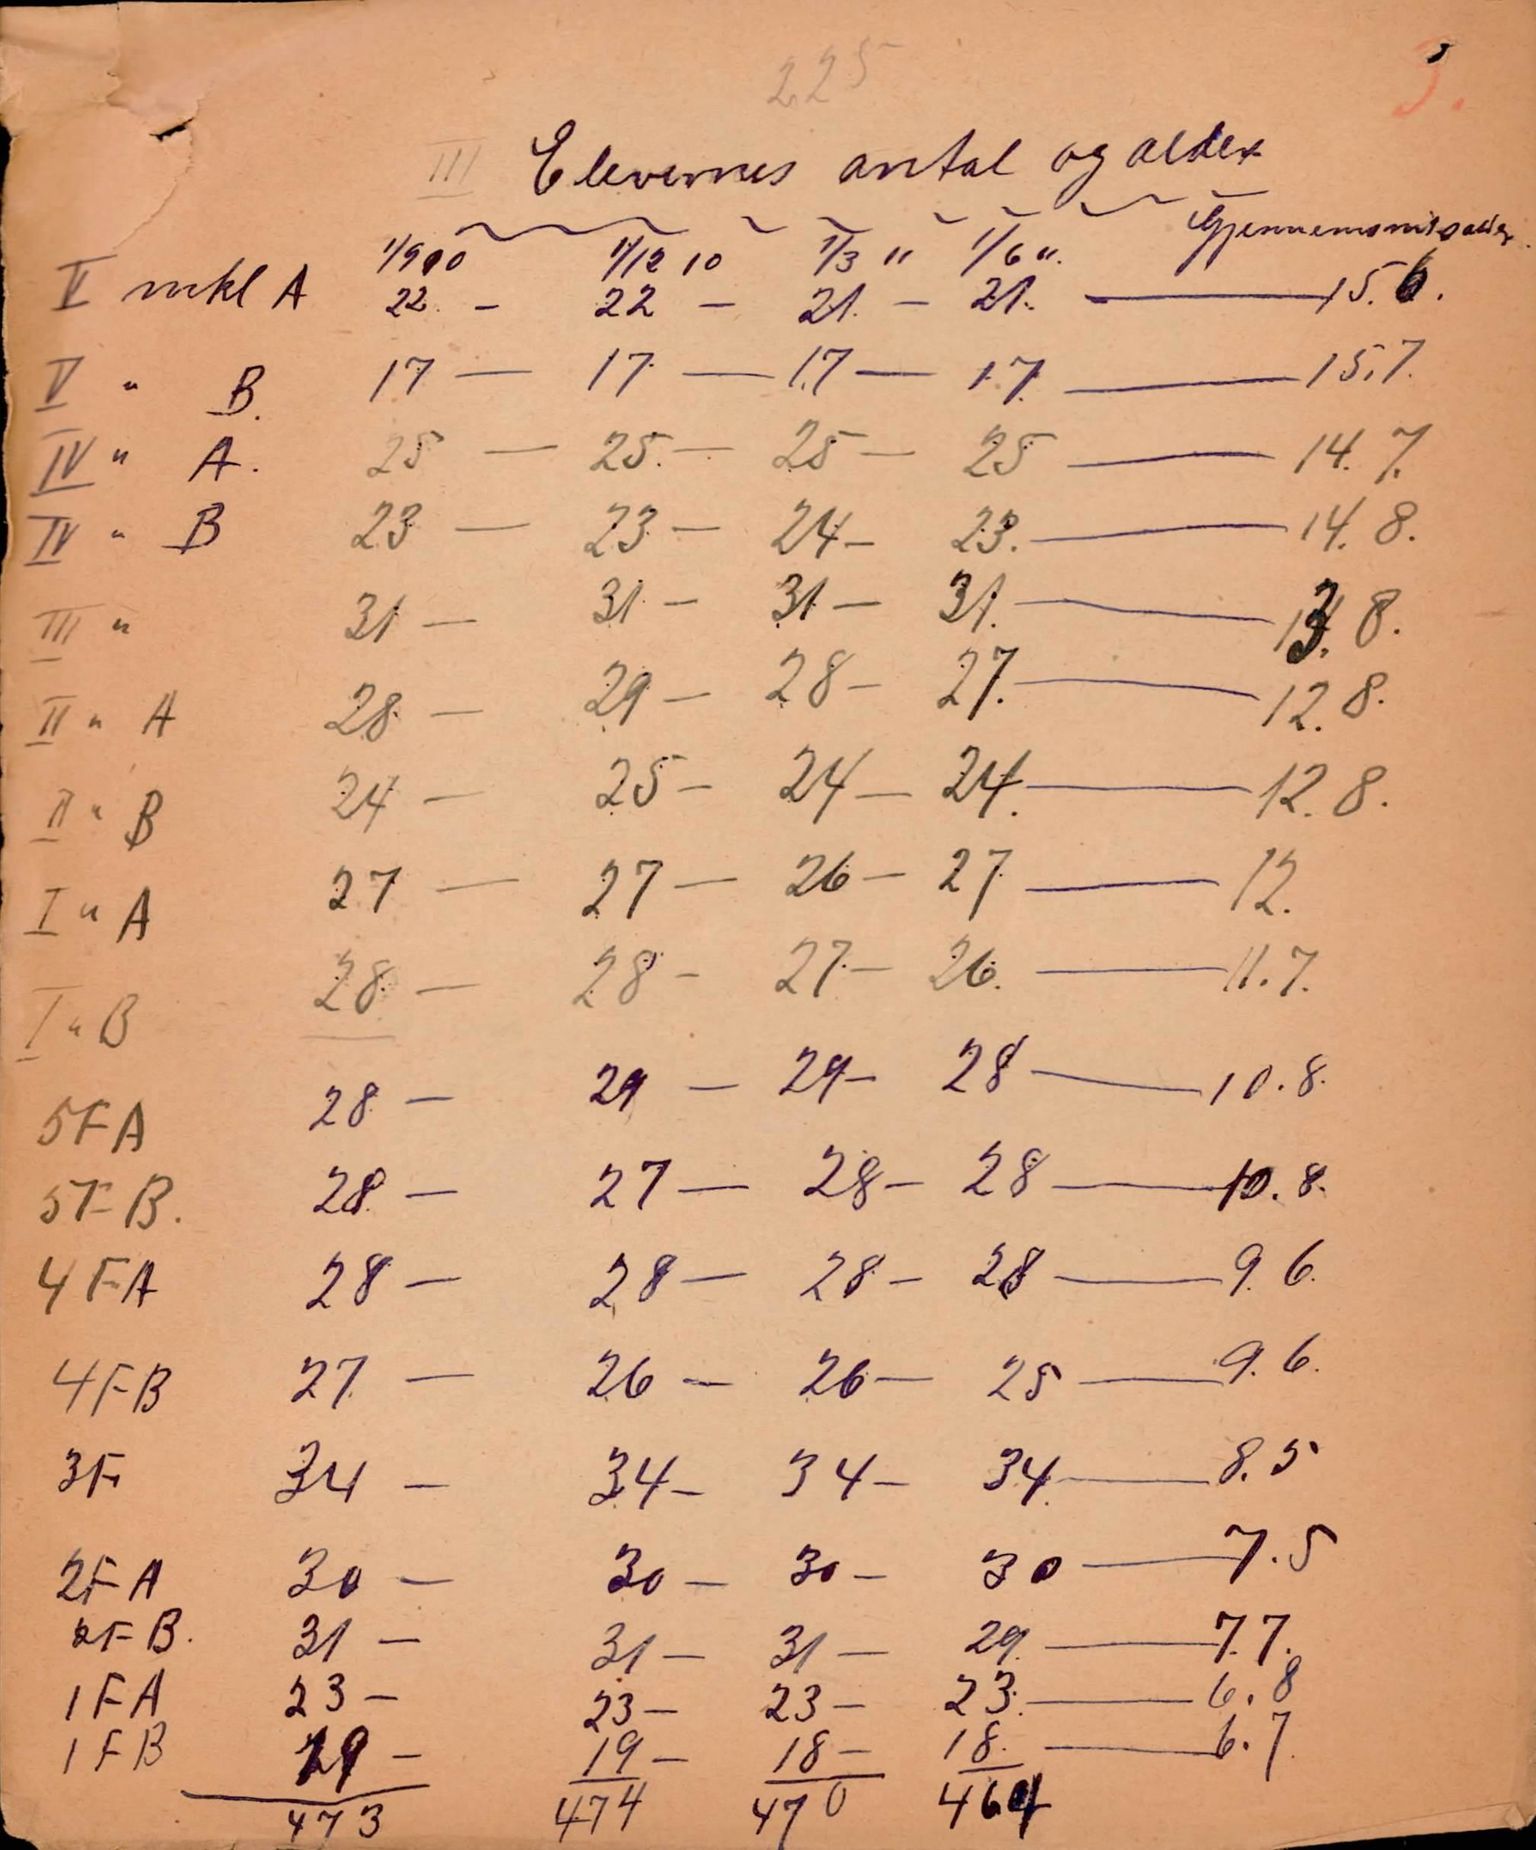 225
3.
III Elevernes antal og alder
Gjennemsnitsalder.
1/9 10 1/12 10 1/3 " 1/6 ".
V mkl A 22. - 22 - 21. - 21. — 15.6.
V " B. 17 — 17. — 17 — 17. — 15.7.
IV " A. 25 — 25. — 25 — 25 — 14.7.
IV " B 23 — 23 — 24 - 23. — 14.8.
III " 31 — 31 - 31 — 31. — 13.8.
II " A 28 — 29 — 28 - 27. — 12.8.
II " B 24 — 25 - 24 — 24. — 12.8.
I " A 27 — 27 — 26 - 27 — 12.
I " B 28 — 28 - 27 - 26. — 11.7.
5FA 28 — 29 — 29 - 28 — 10.8.
5FB. 28 — 27 — 28 - 28 — 10.8.
4FA 28 — 28 — 28 - 28 — 9.6.
4FB 27 — 26 — 26 — 25 — 9.6.
3F 34 — 34 - 34 - 34. — 8.5
2FA 30 — 30 — 30 - 30 — 7.5
2FB. 31 — 31 — 31 — 29. — 7.7.
1FA 23 - 23 - 23 - 23. — 6.8
1FB 19 - 19 - 18 - 18. — 6.7.
473 474 470 464